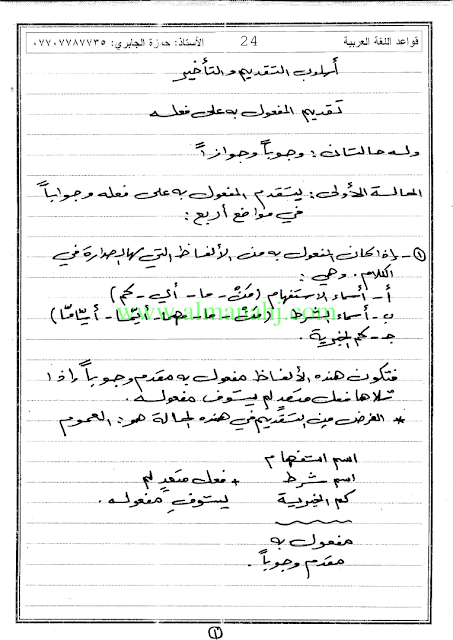 قواعد اللغة العربية 24 الأستاذ: حمزة الجابري: ٠٧٧٠٧٧٨٧٧٣٥
أسلوب التقديم والتأخير
تقديم المفعول به على فعله
وله حالتان: وجوباً وجوازاً
الحالة الأولى: يتقدم المفعول به على فعله وجواباً
في مواضع أربع:
١- إذا كان المفعول به من الألفاظ التي لها الصدارة في
الكلام. وهي:
أ- أسماء الاستفهام (مَنْ - ما - أي - كم)
ب- أسماء الشرط (مَنْ - ما - مهما - أيّما - أيّاً ما)
www.almanahj.com
جـ- كم الخبرية.
فتكون هذه الألفاظ مفعول به مقدم وجوباً إذا
تلاها فعل متعدٍ لم يستوف مفعوله.
* الغرض من التقديم في هذه الحالة هو: العموم
اسم استفهام
اسم شرط + فعل متعدٍ لم
كم الخبرية يستوفِ مفعوله.
مفعول به
مقدم وجوباً.
١